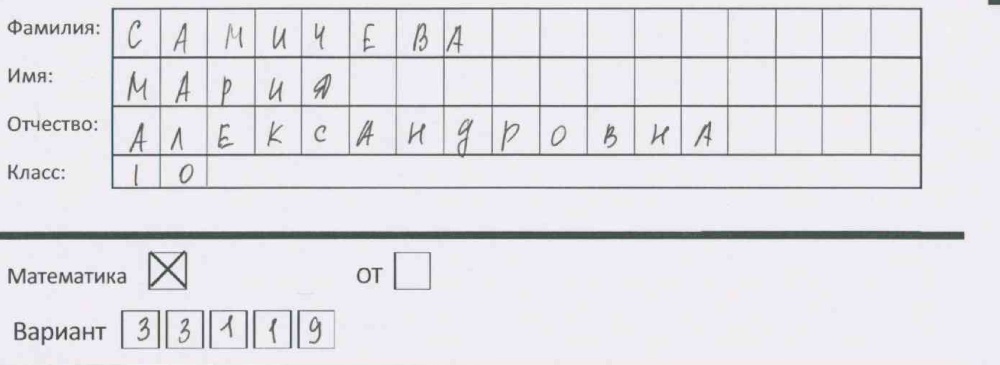 Фамилия: САМИЧЕВА
Имя: МАРИЯ
Отчество: АЛЕКСАНДРОВНА
Класс: 10
Математика ☒ ОТ ☐
Вариант 33119